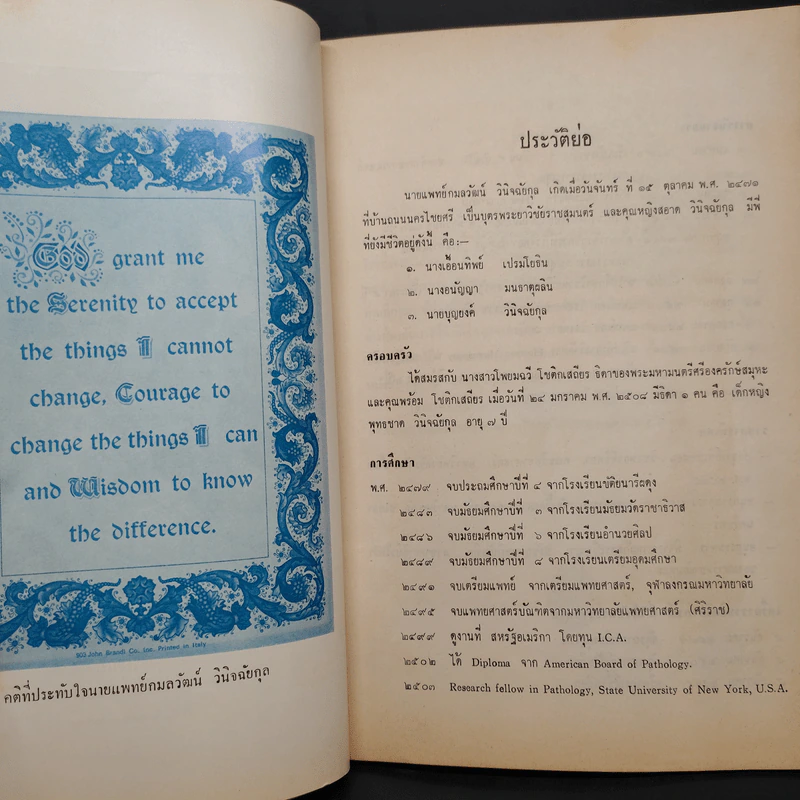 God grant me
the Serenity to accept
the things I cannot
change, Courage to
change the things I can
and Wisdom to know
the difference.
303 John Brandi Co., Inc. Printed in Italy
คติที่ประทับใจนายแพทย์กมลวัฒน์ วินิจฉัยกุล
ประวัติย่อ
นายแพทย์กมลวัฒน์ วินิจฉัยกุล เกิดเมื่อวันจันทร์ ที่ ๑๕ ตุลาคม พ.ศ. ๒๔๗๑
ที่บ้านถนนนครไชยศรี เป็นบุตรพระยาวิชัยราชสุมนตร์ และคุณหญิงสอาด วินิจฉัยกุล มีพี่
ที่ยังมีชีวิตอยู่ดังนี้ คือ:—
๑. นางเอื้อนทิพย์ เปรมโยธิน
๒. นางอนัญญา มนธาตุผลิน
๓. นายบุญยงค์ วินิจฉัยกุล
ครอบครัว
ได้สมรสกับ นางสาวไพยมฉวี โชติกเสถียร ธิดาของพระมหามนตรีศรีองครักษ์สมุหะ
และคุณพร้อม โชติกเสถียร เมื่อวันที่ ๒๔ มกราคม พ.ศ. ๒๕๐๘ มีธิดา ๑ คน คือ เด็กหญิง
พุทธชาด วินิจฉัยกุล อายุ ๗ ปี
การศึกษา
พ.ศ. ๒๔๗๙ จบประถมศึกษาปีที่ ๔ จากโรงเรียนขัติยนารีผดุง
๒๔๘๓ จบมัธยมศึกษาปีที่ ๓ จากโรงเรียนมัธยมวัดราชาธิวาส
๒๔๘๖ จบมัธยมศึกษาปีที่ ๖ จากโรงเรียนอำนวยศิลป
๒๔๘๙ จบมัธยมศึกษาปีที่ ๘ จากโรงเรียนเตรียมอุดมศึกษา
๒๔๙๑ จบเตรียมแพทย์ จากเตรียมแพทยศาสตร์, จุฬาลงกรณมหาวิทยาลัย
๒๔๙๕ จบแพทยศาสตร์บัณฑิตจากมหาวิทยาลัยแพทยศาสตร์ (ศิริราช)
๒๔๙๙ ดูงานที่ สหรัฐอเมริกา โดยทุน I.C.A.
๒๕๐๒ ได้ Diploma จาก American Board of Pathology.
๒๕๐๓ Research fellow in Pathology, State University of New York, U.S.A.